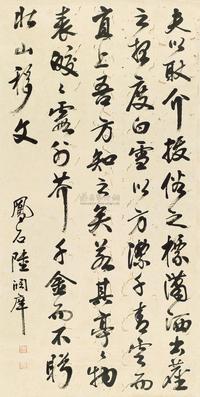 夫以耿介拔俗之標瀟洒出塵
之想度白雪以方潔干青雲而
直上吾方知之矣若其亭〻物
表皎〻霞外芥千金而不眄
北山移文
鳳石陸潤庠